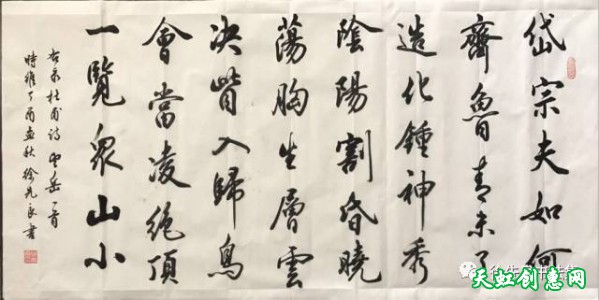 岱宗夫如何
齊魯青未了
造化鍾神秀
陰陽割昏曉
蕩胸生層雲
决眥入歸鳥
會當凌絶頂
一覽衆山小
右录杜甫詩望岳一首
時維丁酉孟秋徐先良書
天虹创意网